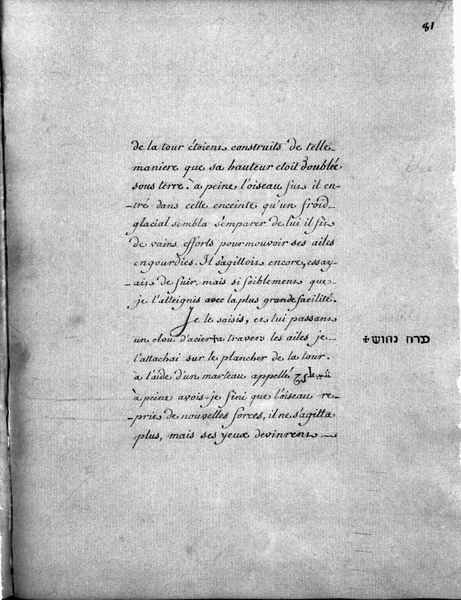 81
de la tour étoient construits de telle
maniere que sa hauteur etoit doublée
sous terre. à peine l'oiseau fut il en-
-tré dans cette enceinte qu'un froid
glacial sembla s'emparer de lui il fit
de vains efforts pour mouvoir ses ailes
engourdies. Il s'agittoit encore, essay-
-ait de fuir, mais si foiblement que
je l'atteignis avec la plus grande facilité.
Je le saisis, et lui passant
un clou d'acier a travers les ailes je
l'attachai sur le plancher de la tour.
à l'aide d'un marteau appellé
à peine avois-je fini que l'oiseau re-
-prit de nouvelles forces, il ne s'agitta
plus, mais ses yeux devinrent